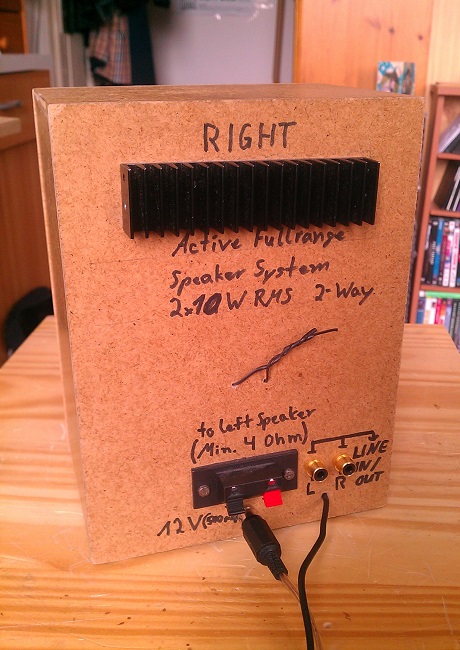 RIGHT
Active Fullrange
Speaker System
2x10W RMS 2-Way
to left speaker
(Min. 4 Ohm)
LINE
IN/
L R OUT
12V